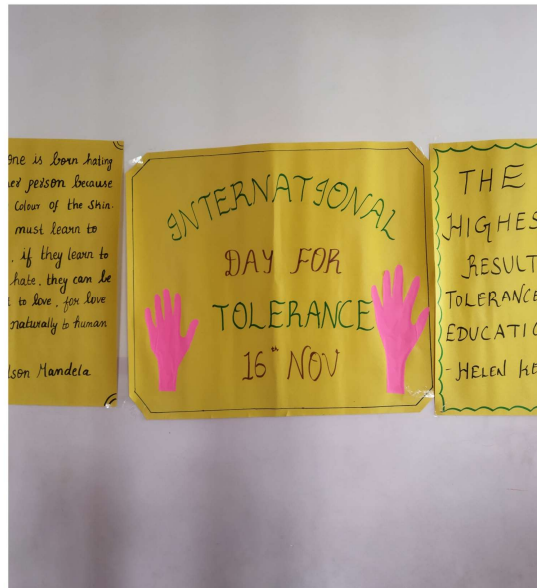 one is born hating
her person because
Colour of the Skin.
must learn to
, if they learn to
hate, they can be
t to love, for love
naturally to human
lson Mandela
INTERNATIONAL
DAY FOR
TOLERANCE
16th NOV
THE
HIGHES
RESULT
TOLERANCE
EDUCATIO
- HELEN KE